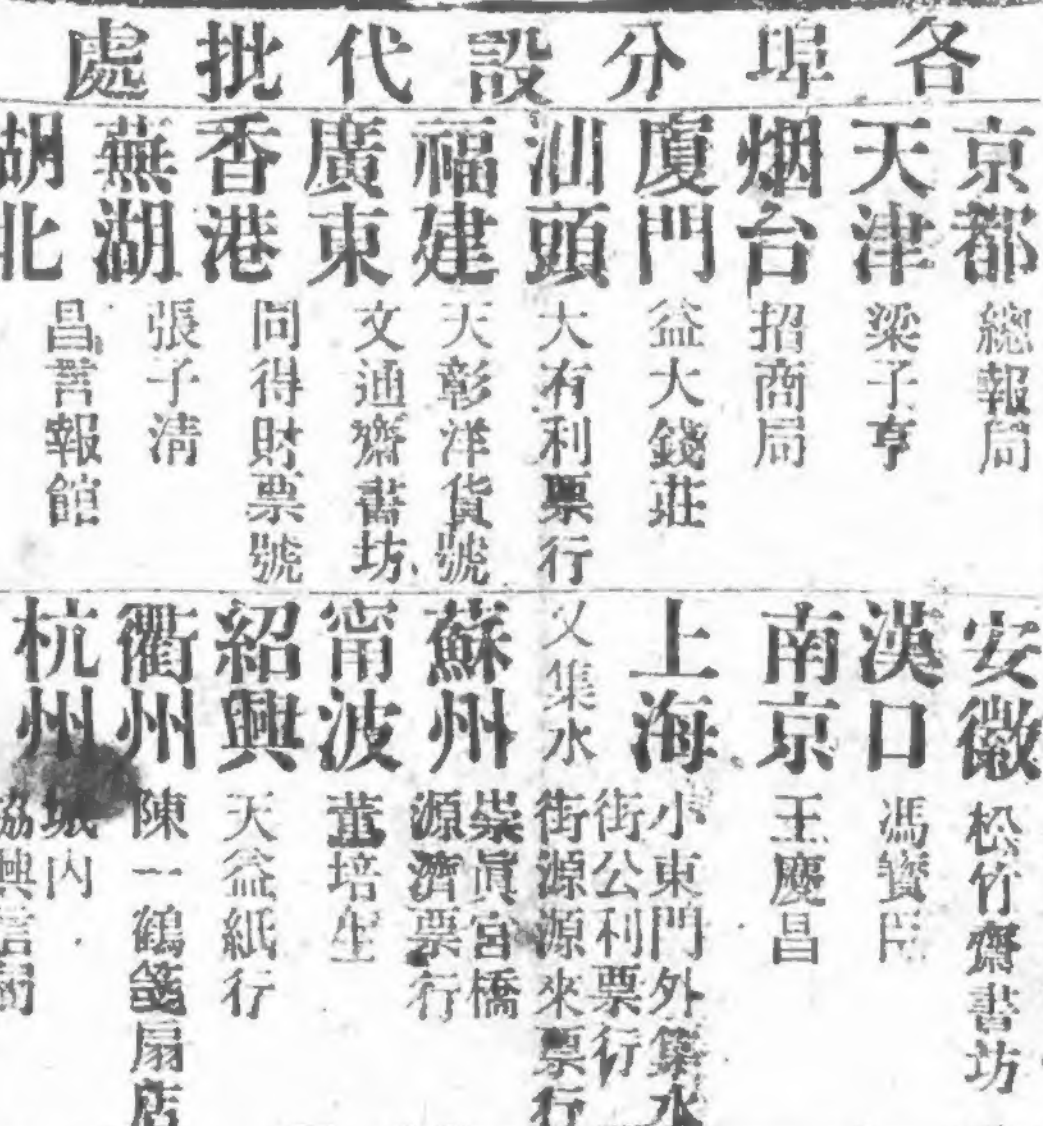 各埠分設代批處
京都 總報局
天津 梁子亨
烟台 招商局
廈門 益大錢莊
汕頭 大有利票行
福建 天彰洋貨號
廣東 文通齋書坊
香港 同得財票號
蕪湖 張子清
湖北 昌言報館
安徽 松竹齋書坊
漢口 馮寶
南京 王慶昌
上海 小東門外集水
街公利票行
又集水街源源來票行
蘇州 崇眞宮橋
源濟票行
甯波 董培生
紹興 天益紙行
衢州 陳一鶴箋扇店
杭州 城內
協興信局